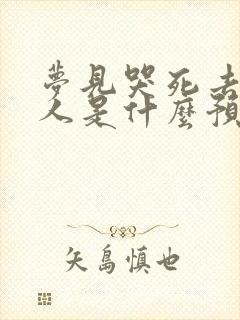 夢見哭死去
人是什麼預
矢島慎也